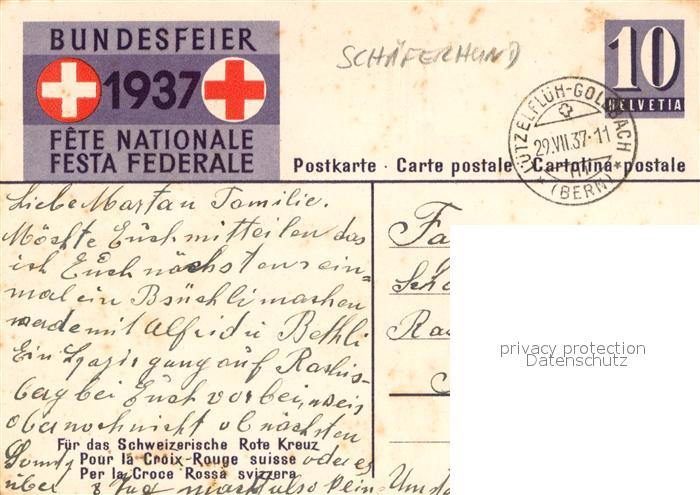 BUNDESFEIER
1937
FÊTE NATIONALE
FESTA FEDERALE
SCHÄFERHUND
10
HELVETIA
LÜTZELFLÜH-GOLDBACH
29.VII.37-11
(BERN)
Postkarte · Carte postale · Cartolina postale
Liebe Familie.
Möchte Euch mitteilen das
ich Euch nächstens ein=
mal ein Bsüchli machen
werde mit Alfred u Bethli
Ein gang auf
berg bei Euch vorbei, weis
aber noch nicht ob nächsten
oder es
über 8 Tag macht also kein
Für das Schweizerische Rote Kreuz
Pour la Croix-Rouge suisse
Per la Croce Rossa svizzera
Fa
Ra
privacy protection
Datenschutz